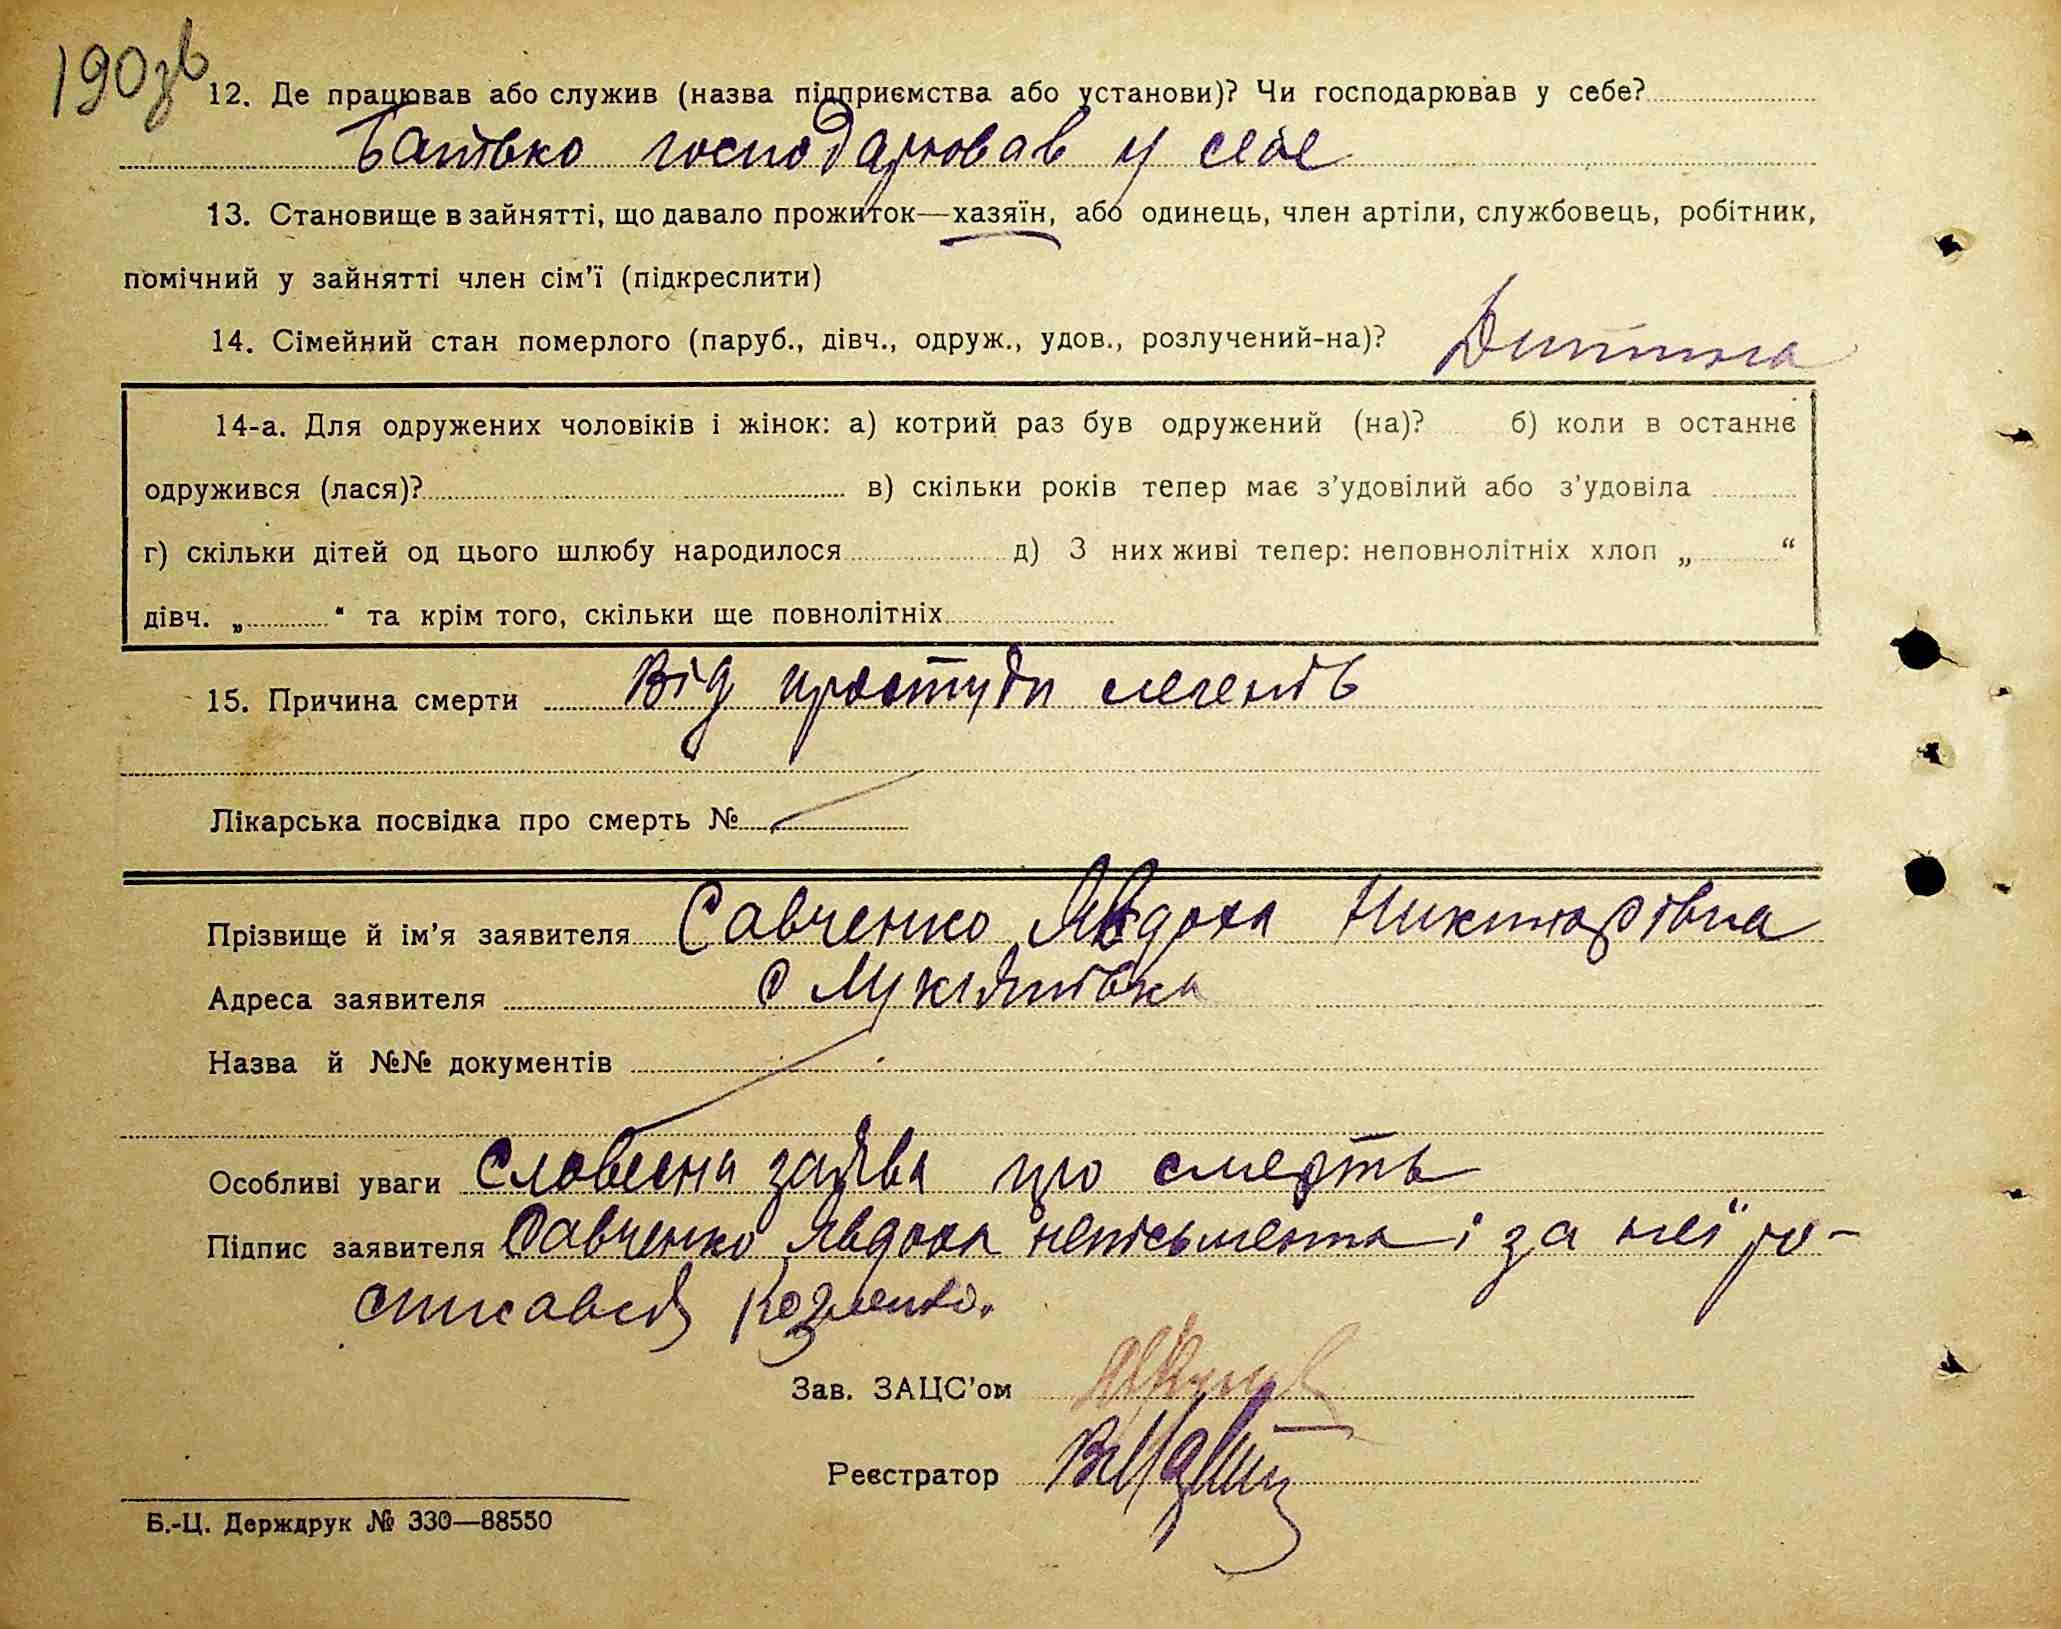 190зв
12. Де працював або служив (назва підприємства або установи)? Чи господарював у себе?
Батько господарював у себе
13. Становище в зайнятті, що давало прожиток—хазяїн, або одинець, член артіли, службовець, робітник,
помічний у зайнятті член сім'ї (підкреслити)
14. Сімейний стан померлого (паруб., дівч., одруж., удов., розлучений-на)? Дитина
14-а. Для одружених чоловіків і жінок: а) котрий раз був одружений (на)? б) коли в останнє
одружився (лася)? в) скільки років тепер має з'удовілий або з'удовіла
г) скільки дітей од цього шлюбу народилося д) З них живі тепер: неповнолітніх хлоп „ “
дівч. „ “ та крім того, скільки ще повнолітніх
15. Причина смерти Від простуди легенів
Лікарська посвідка про смерть №
Прізвище й ім'я заявителя Савченко Явдоха Никифорівна
Адреса заявителя с Лукʼянівка
Назва й №№ документів
Особливі уваги Словесна заява про смерть
Підпис заявителя Савченко Явдоха неписьменна і за неї ро-
списався Козленко.
Зав. ЗАЦС'ом
Реєстратор
Б.-Ц. Держдрук № 330—88550